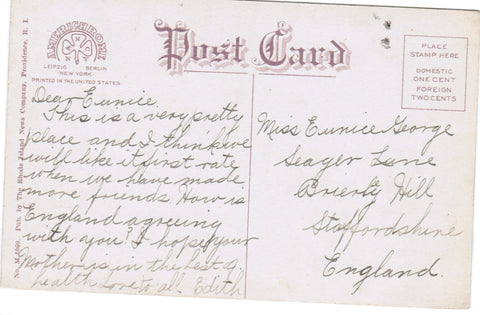 No. M.1060. Pub. by The Rhode Island News Company, Providence, R. I.
AMERICHROME
LEIPZIG BERLIN
NEW YORK
PRINTED IN THE UNITED STATES
Post Card
PLACE
STAMP HERE
DOMESTIC
ONE CENT
FOREIGN
TWO CENTS
Dear Eunice.
This is a very pretty
place and I think we
will like it first rate
when we have made
more friends. How is
England agreeing
with you? I hope your
Mother is in the best of
health Love to all Edith
Miss Eunice George
Seager Lane
Brierly Hill
Staffordshire
England.